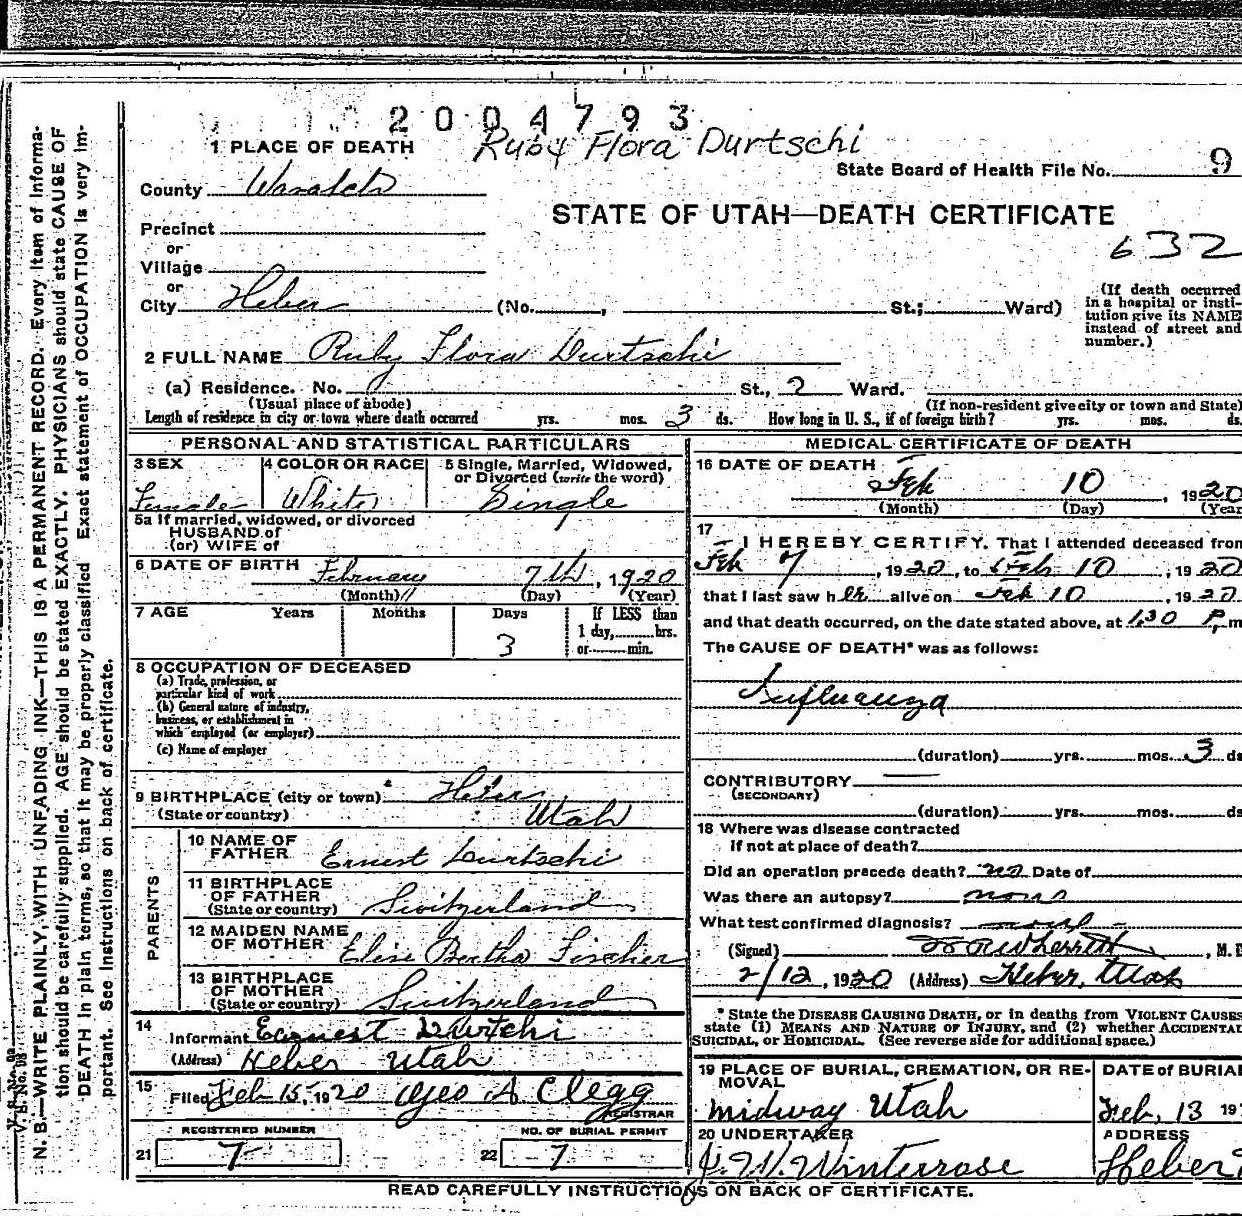 2004793
Ruby Flora Durtschi
1 PLACE OF DEATH
State Board of Health File No. 9
County Wasatch
STATE OF UTAH—DEATH CERTIFICATE
Precinct
632
or
Village
or
City Heber (No. , St.; Ward)
(If death occurred in a hospital or institution give its NAME instead of street and number.)
2 FULL NAME Ruby Flora Durtschi
(a) Residence. No. St., 2 Ward.
(Usual place of abode) (If non-resident give city or town and State)
Length of residence in city or town where death occurred yrs. mos. 3 ds. How long in U. S., if of foreign birth? yrs. mos. ds.
PERSONAL AND STATISTICAL PARTICULARS
3 SEX
Female
4 COLOR OR RACE
White
5 Single, Married, Widowed,
or Divorced (write the word)
Single
5a If married, widowed, or divorced
HUSBAND of
(or) WIFE of
6 DATE OF BIRTH February 7th, 1920
(Month) (Day) (Year)
7 AGE Years Months Days If LESS than
3 1 day, hrs.
or min.
8 OCCUPATION OF DECEASED
(a) Trade, profession, or
particular kind of work
(b) General nature of industry,
business, or establishment in
which employed (or employer)
(c) Name of employer
9 BIRTHPLACE (city or town) Heber
(State or country) Utah
PARENTS
10 NAME OF
FATHER Ernest Durtschi
11 BIRTHPLACE
OF FATHER
(State or country) Switzerland
12 MAIDEN NAME
OF MOTHER Elise Bertha Fischer
13 BIRTHPLACE
OF MOTHER
(State or country) Switzerland
14
Informant Earnest Durtchi
(Address) Heber Utah
15
Filed Feb 15, 1920 Geo A Clegg
REGISTRAR
REGISTERED NUMBER NO. OF BURIAL PERMIT
21 7 22 7
MEDICAL CERTIFICATE OF DEATH
16 DATE OF DEATH
Feb 10, 1920
(Month) (Day) (Year
17
I HEREBY CERTIFY. That I attended deceased from
Feb 7, 1920, to Feb 10, 1920
that I last saw her alive on Feb 10, 1920
and that death occurred, on the date stated above, at 1,30 P, m
The CAUSE OF DEATH* was as follows:
Influenza
(duration) yrs. mos. 3 ds
CONTRIBUTORY
(SECONDARY)
(duration) yrs. mos. ds
18 Where was disease contracted
If not at place of death?
Did an operation precede death? no Date of
Was there an autopsy? none
What test confirmed diagnosis?
(Signed) Wherritt, M. D
2/12, 1920 (Address) Heber, Utah
* State the DISEASE CAUSING DEATH, or in deaths from VIOLENT CAUSES
state (1) MEANS AND NATURE OF INJURY, and (2) whether ACCIDENTAL
SUICIDAL, or HOMICIDAL. (See reverse side for additional space.)
19 PLACE OF BURIAL, CREMATION, OR RE-
MOVAL
Midway Utah
DATE of BURIAL
Feb, 13 19
20 UNDERTAKER
J. W. Winterrose
ADDRESS
Heber
READ CAREFULLY INSTRUCTIONS ON BACK OF CERTIFICATE.
N. B.—WRITE PLAINLY, WITH UNFADING INK—THIS IS A PERMANENT RECORD. Every item of Informa-
tion should be carefully supplied. AGE should be stated EXACTLY. PHYSICIANS should state CAUSE OF
DEATH in plain terms, so that it may be properly classified. Exact statement of OCCUPATION is very im-
portant. See Instructions on back of certificate.